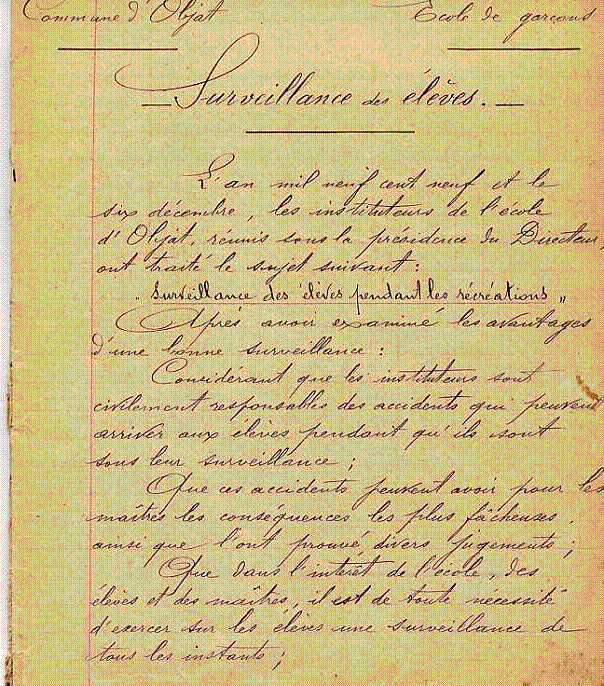 Commune d'Objat
Ecole de garçons
Surveillance des élèves.
L'an mil neuf cent neuf et le
six décembre, les instituteurs de l'école
d'Objat, réunis sous la présidence du Directeur,
ont traité le sujet suivant :
" Surveillance des élèves pendant les récréations "
Après avoir examiné les avantages
d'une bonne surveillance :
Considérant que les instituteurs sont
civilement responsables des accidents qui peuvent
arriver aux élèves pendant qu'ils sont
sous leur surveillance ;
Que ces accidents peuvent avoir pour les
maîtres les conséquences les plus fâcheuses,
ainsi que l'ont prouvé divers jugements ;
Que dans l'intérêt de l'école, des
élèves et des maîtres, il est de toute nécessité
d'exercer sur les élèves une surveillance de
tous les instants ;